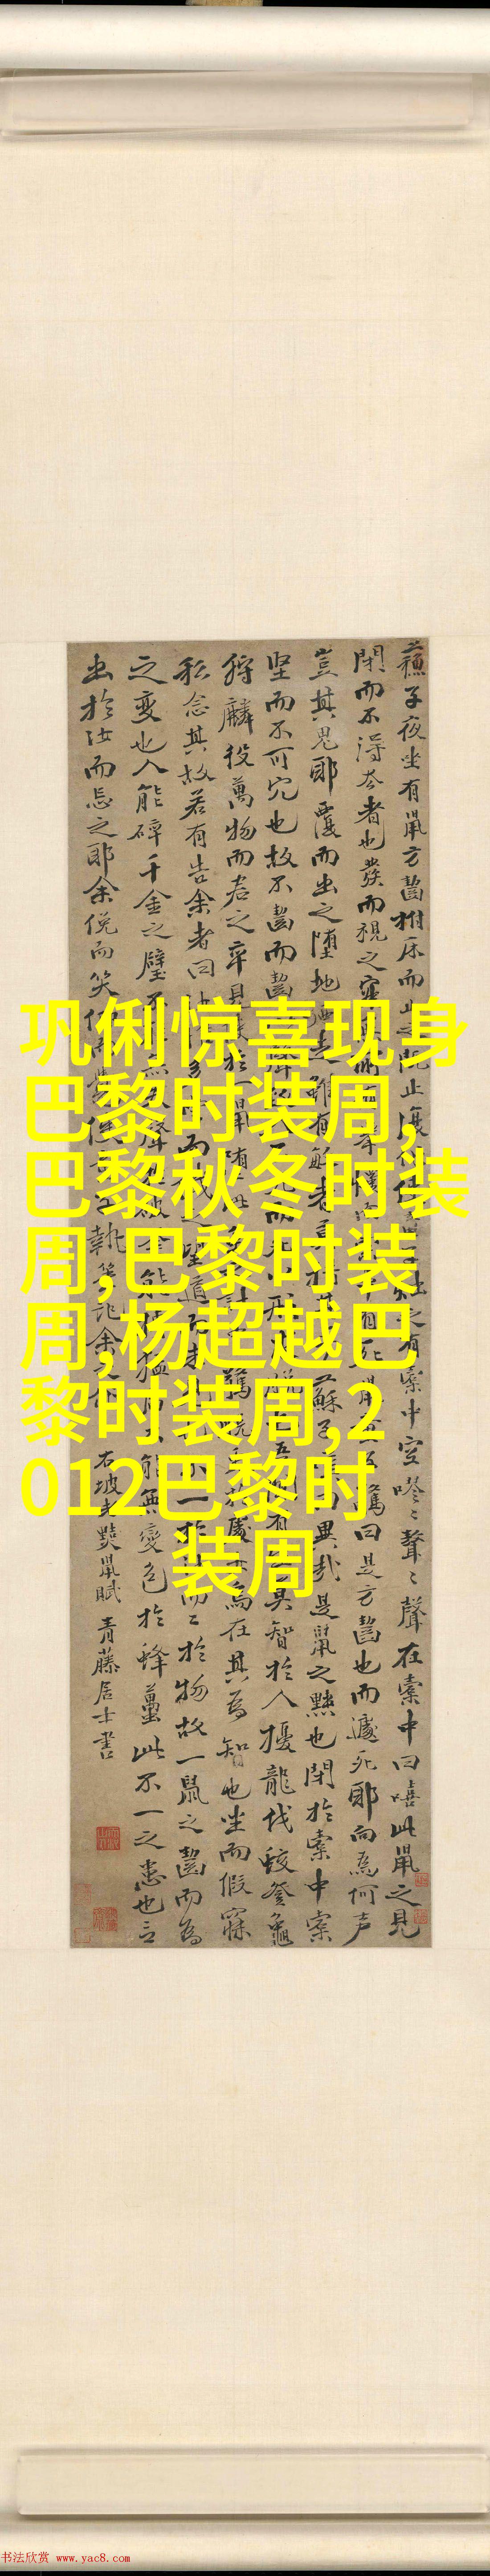 巩俐惊喜现身
巴黎时装周,
巴黎秋冬时装
周,巴黎时装
周,杨超越巴
黎时装周,2
012巴黎时
装周
蘇子夜坐有鼠方齧拊床而止之既止復之有橐中空嘐〻聲〻聲在橐中曰嘻此鼠之見
閉而不得去者也發而視之寂死鼠驚曰是方齧也而遽死耶向為何声
豈其鬼耶覆而出之墮地乃走雖有敏者莫措其蘇子曰異哉是鼠之黠也閉於橐中橐
堅而不可穴也故不齧而齧形有莫智於人擾龍伐蛟登龜
狩麟役萬物而君之卒見使於一鼠墮此計驚脫於處女烏在其為智也坐而假寐
私念其故若有告余者曰多而之望道而未一於汝而二於物故一鼠之齧而為
之變也人能碎千金之璧不無聲破能猛虎不能無變色於蜂蠆此不一之患也言
出於汝而忘之耶余俛而笑仰而覺使執筆記余之
右坡老黠鼠賦 青藤居士書
书法欣赏 www.yac8.com